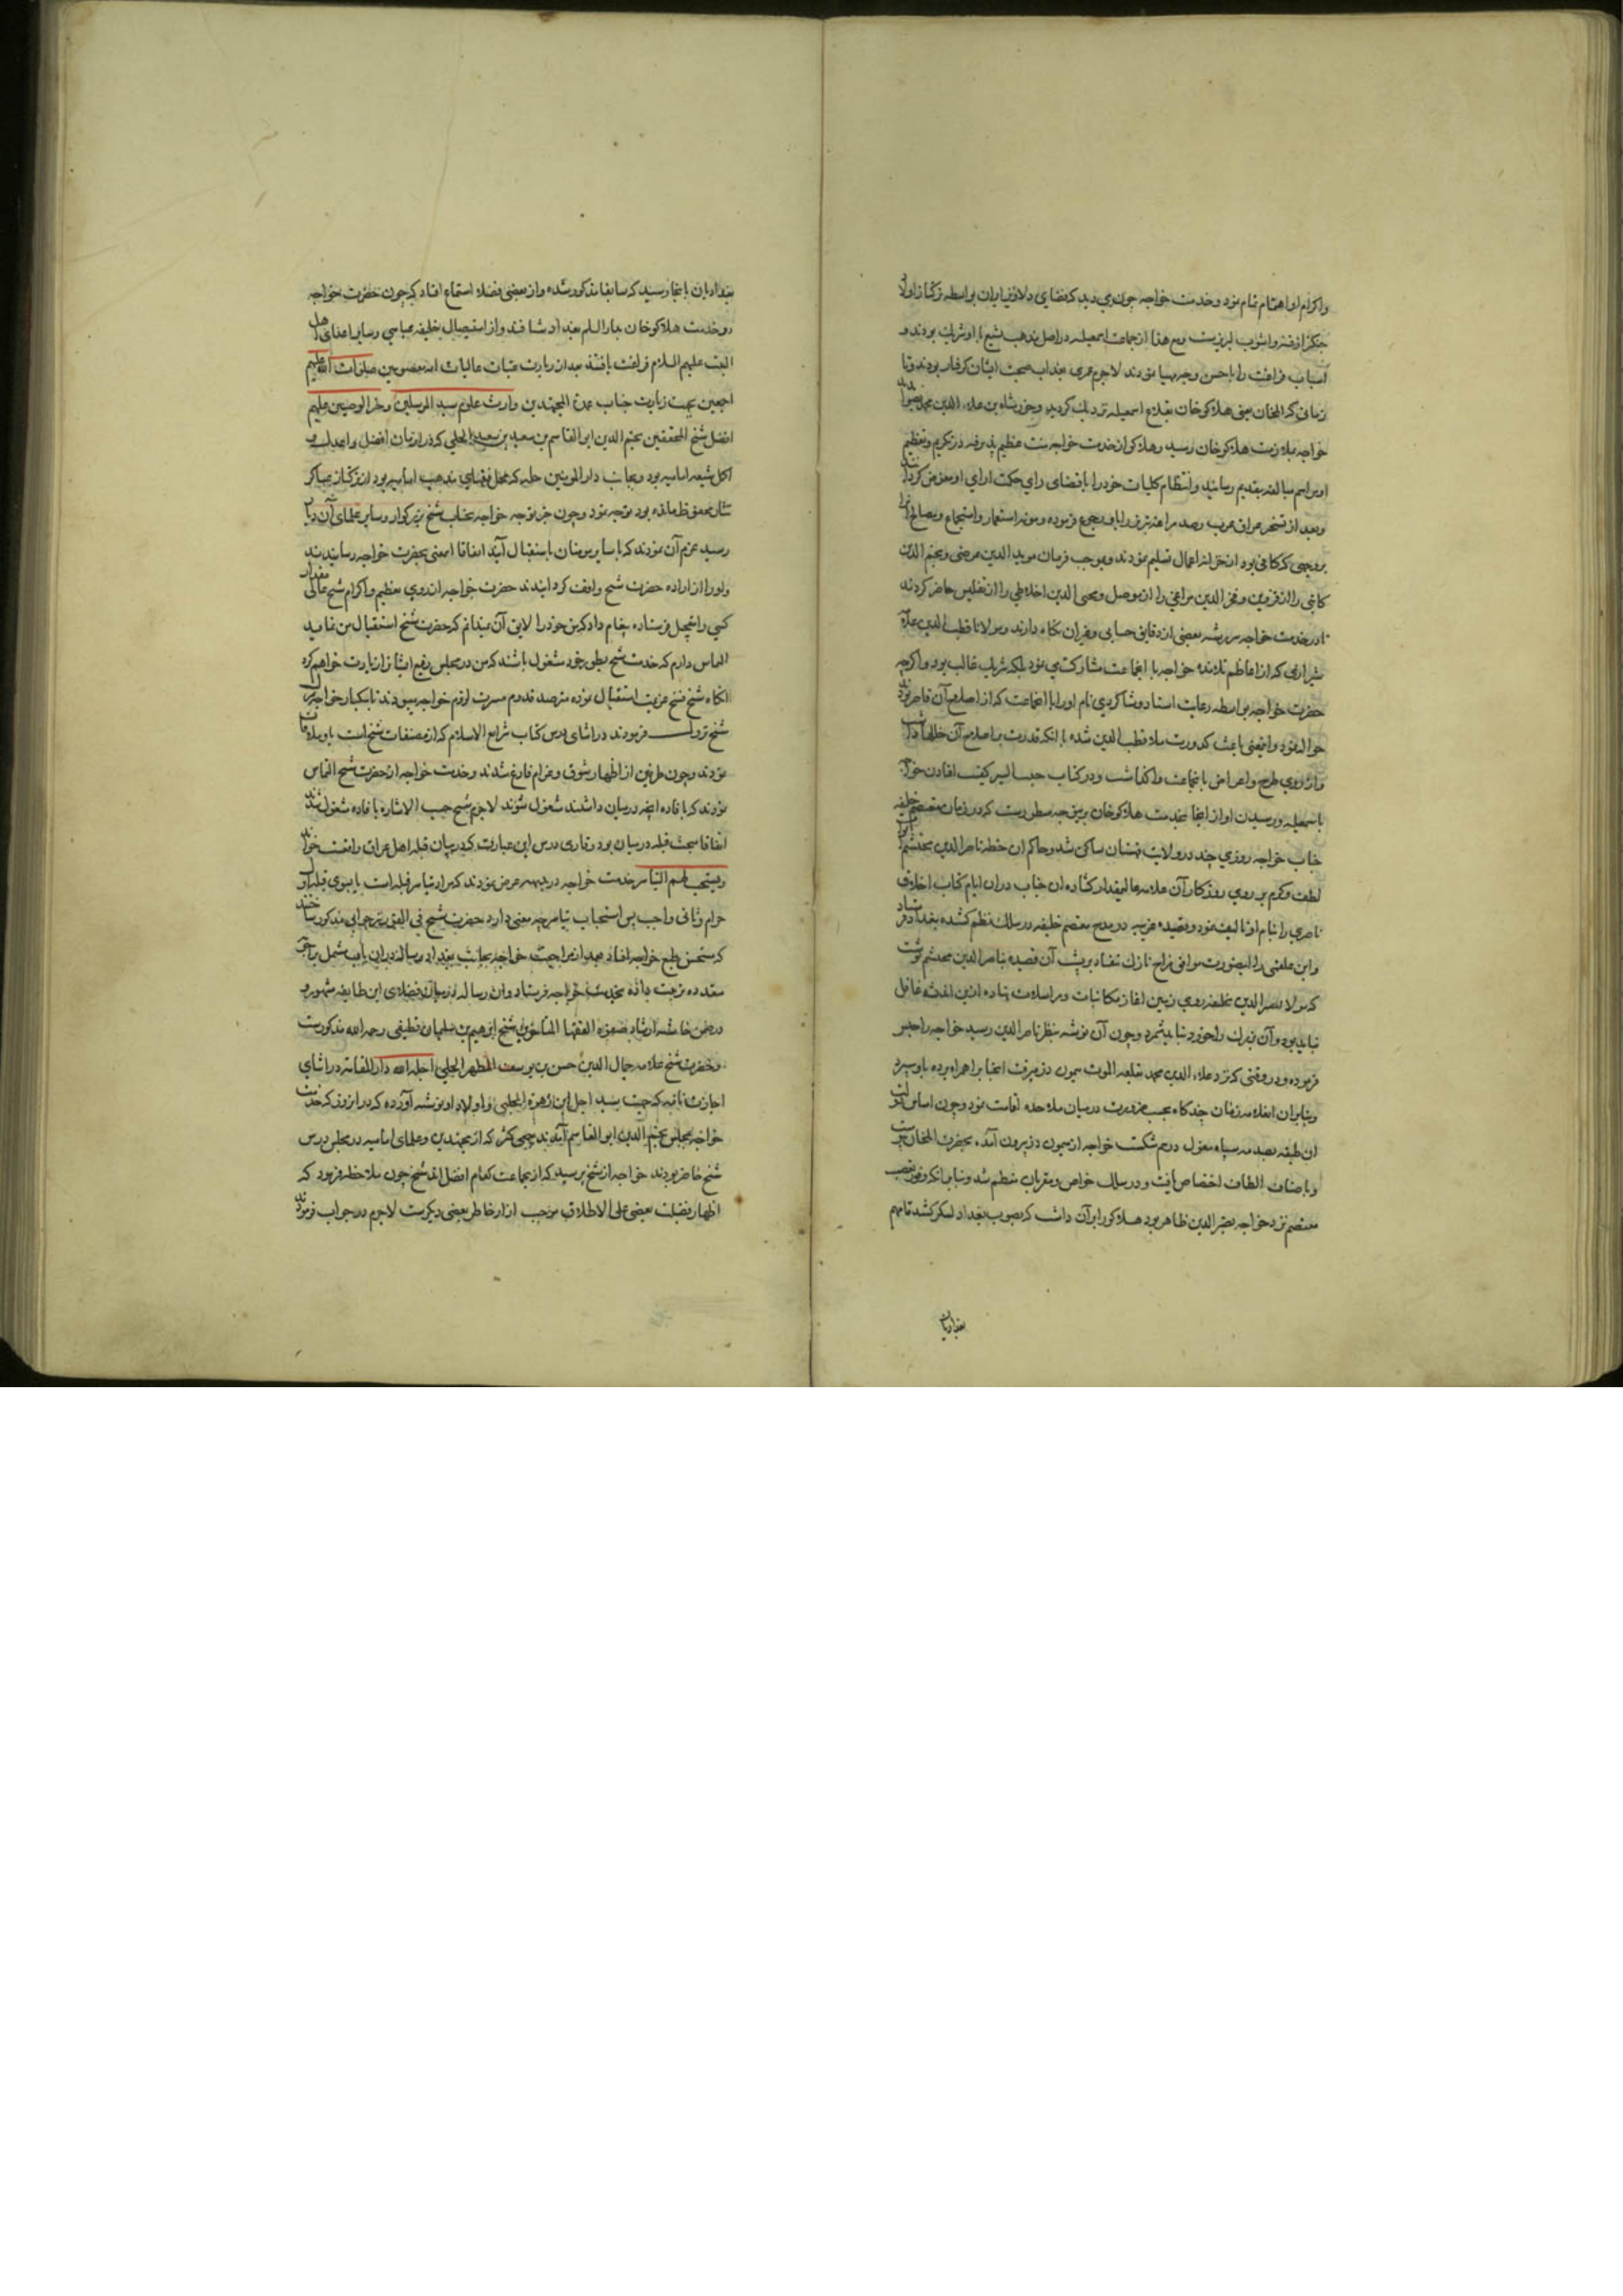 واکرام او اهتمام تمام نمود وخدمت خواجه چون می دید که فضای دلاوز ایران بواسطه ترکتاز اولاد
چنگیز از فتنه واشوب لبریزست ومع هذا از جماعت اسمعیلیه در اصل مذهب تشیع با او شریک بودند و
اسباب فراغت را باحسن وجه مهیا نمودند لاجرم عمری بعذاب صحبت ایشان گرفتار بودند وتا
زمانی که ایلخان یعنی هلاکوخان بقلاع اسمعیلیه نزدیک گردید وخورشاه بن علاء الدین محمد
خواجه بملازمت هلاکوخان رسید وهلاکو از خدمت خواجه منت عظیم پذیرفته در تکریم وتعظیم
او مراسم مبالغه بتقدیم رسانید وانتظام کلیات خود را باقتضای رای حکمت ارای او مفوض کردانید
وبعد از تسخیر عراق عرب رصد مراغه تبریز را باو رجوع فرموده ومونه استعمار واستجماع ومصالح انرا
بروجهی که کافی بود از خزانه اعمال تسلیم نمودند وبموجب فرمان موید الدین عرضی ونجم الدین
کاتبی را از قزوین وفخر الدین مراغی را از موصل ومحیی الدین اخلاطی را از تفلیس حاضر کردند
تا در خدمت خواجه سر رشته بعضی از دقایق حسابی ومیزان نکاه دارند ومولانا قطب الدین علامه
شیرازی که از اعاظم تلامذه خواجه با انجماعت مشارکت می نمود بلکه شریک غالب بود واکرچه
حضرت خواجه بواسطه رعایت استاد وشاکردی نام او را با انجماعت که از اصلاح آن قاصر بودند
حواله نمود واینمعنی باعث کدورت ملا قطب الدین شده با آنکه قدرت بر اصلاح آن خللها داشت
واز روی طرح واعراض بانجماعت واکذاشت ودر کتاب حبیب السیر کیفیت افتادن خواجه
باسمعیلیه ورسیدن او از انجا بخدمت هلاکوخان برین وجه مسطورست که در زمان مستعصم خلیفه
جناب خواجه روزی چند در ولایت قهستان ساکن شد وحاکم ان خطه ناصر الدین محتشم ابواب
لطف وکرم بر روی روزکار آن علامه عالیمقدار کشاده ان جناب در ان ایام کتاب اخلاق
ناصری را بنام او تالیف نمود وقصیده عربیه در مدح مستعصم خلیفه در سلک نظم کشیده ببغداد فرستاد
وابن علقمی را اینصورت موافق مزاج نازک نیفتاد بر پشت آن قصیده بناصر الدین محتشم نوشت
که مولانا نصیر الدین بخلیفه روی زمین اغاز مکاتبات ومراسلات نهاده ازین اندیشه غافل
نباید بود وآن نیرنک را خورد نباید شمرد وچون آن نوشته بنظر ناصر الدین رسید خواجه را حبس
فرموده ودر وقتی که نزد علاء الدین محمد بقلعه الموت میمون دز میرفت انجناب را همراه برده باو سپرد
وبنابران انعلامه زمان چند کاه بحسب ضرورت در میان ملاحده اقامت نمود وچون اساس دولت
ان طبقه بصدمه سپاه مغول در هم شکست خواجه از میمون دز بیرون آمده بحضرت ایلخان پیوست
وباصناف الطاف اختصاص یافت ودر سلک خواص ومقربان منتظم شد وبنابر انکه وفور تعصب
مستعصم نزد خواجه نصیر الدین ظاهر بود هلاکو را بر آن داشت که بصوب بغداد لشکر کشد تا مهم
بغدادیان
بغدادیان بانجا رسید که سابقا مذکور شد واز بعضی فضلا استماع افتاد که چون حضرت خواجه
در خدمت هلاکوخان بدار السلم بغداد شتافتند واز استیصال خلیفه عباسی وسایر اعدای اهل
البیت علیهم السلام فراغت یافتند بعد از زیارت عتبات عالیات ائمه معصومین صلوات الله علیهم
اجمعین بجهت زیارت جناب عمدة المجتهدین وارث علوم سید المرسلین وفخر الوصیین علیهم
افضل شیخ المحققین نجم الدین ابو القاسم بن سعید بن سعید الحلی که در ان زمان افضل واعدل و
اکمل شیعه امامیه بود وبجانب دار المومنین حله که محل فقهای مذهب امامیه بود از ترکتاز عساکر
تتار محفوظ مانده بود توجه نمود وچون خبر توجه خواجه بجناب شیخ بزرکوار وسایر علمای آن دیار
رسید عزم آن نمودند که با سایر مومنان باستقبال آیند اتفاقا اینمعنی بحضرت خواجه رسانیدند
واو را از اراده حضرت شیخ واقف کردانیدند حضرت خواجه از روی تعظیم واکرام شیخ عالی مقدار
کسی را بتعجیل فرستاده پیغام داد که من خود را لایق آن نمیدانم که حضرت شیخ استقبال من نماید
التماس دارم که خدمت شیخ بطور خود مشغول باشند که من در مجلس رفیع ایشانرا زیارت خواهم کرد
انکاه شیخ فسخ عزیمت استقبال نموده مترصد قدوم مسرت لزوم خواجه میبودند تا بیکبار خواجه بر
شیخ نزول فرمودند در اثنای درس کتاب شرایع الاسلام که از مصنفات شیخ است باو ملاقات
نمودند وچون طرفین از اظهار شوق وغرام فارغ شدند وخدمت خواجه از حضرت شیخ التماس
نمودند که بافاده انچه در میان داشتند مشغول شوند لاجرم شیخ حسب الاشاره بافاده مشغول شدند
اتفاقا مبحث قبله در میان بود وقاری درس این عبارت که در بیان قبله اهل عراق واقعست خواند
ویستحب لهم التیاسر خدمت خواجه در بدیهه عرض نمودند که مراد تیاسر قبله است یا بسوی قبله اول
حرام وثانی واجب پس استحباب تیاسر چه معنی دارد حضرت شیخ فی الفور بر جوابی مذکور ساختند
که مستحسن طبع خواجه افتاد وبعد از مراجعت خواجه بجانب بغداد رساله در این باب مشتمل بر اجوبه
متعدده ترتیب داده بخدمت خواجه فرستاد وان رساله در میان فضلای این طایفه مشهور و
در ضمن حاشیه ارشاد خاتم الفقها المتاخرین شیخ ابرهیم بن سلیمان قطیفی رحمه الله مذکورست
وحضرت شیخ علامه جمال الدین حسن بن یوسف المطهر الحلی احله الله دار المقامه در اثنای
اجازت نامه که جهت سید اجل ابن زهرة الحلبی واولاد او نوشته آورده که در ان روز که خدمت
خواجه بمجلس نجم الدین ابو القاسم آمدند جمعی کثیر که از مجتهدین وعلمای امامیه در مجلس درس
شیخ حاضر بودند خواجه از شیخ پرسید که از جماعت کدام افضل اند شیخ چون ملاحظه فرمود که
اظهار فضیلت بعضی علی الاطلاق موجب ازار خاطر بعضی دیکرست لاجرم در جواب فرمودند